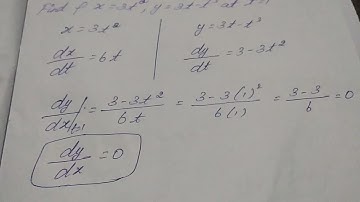 Find ρ x = 3t², y = 3t - t³ at t=1
x = 3t²
y = 3t - t³
dx/dt = 6t
dy/dt = 3 - 3t²
dy/dx|t=1 = 3 - 3t² / 6t = 3 - 3(1)² / 6(1) = 3 - 3 / 6 = 0
dy/dx = 0